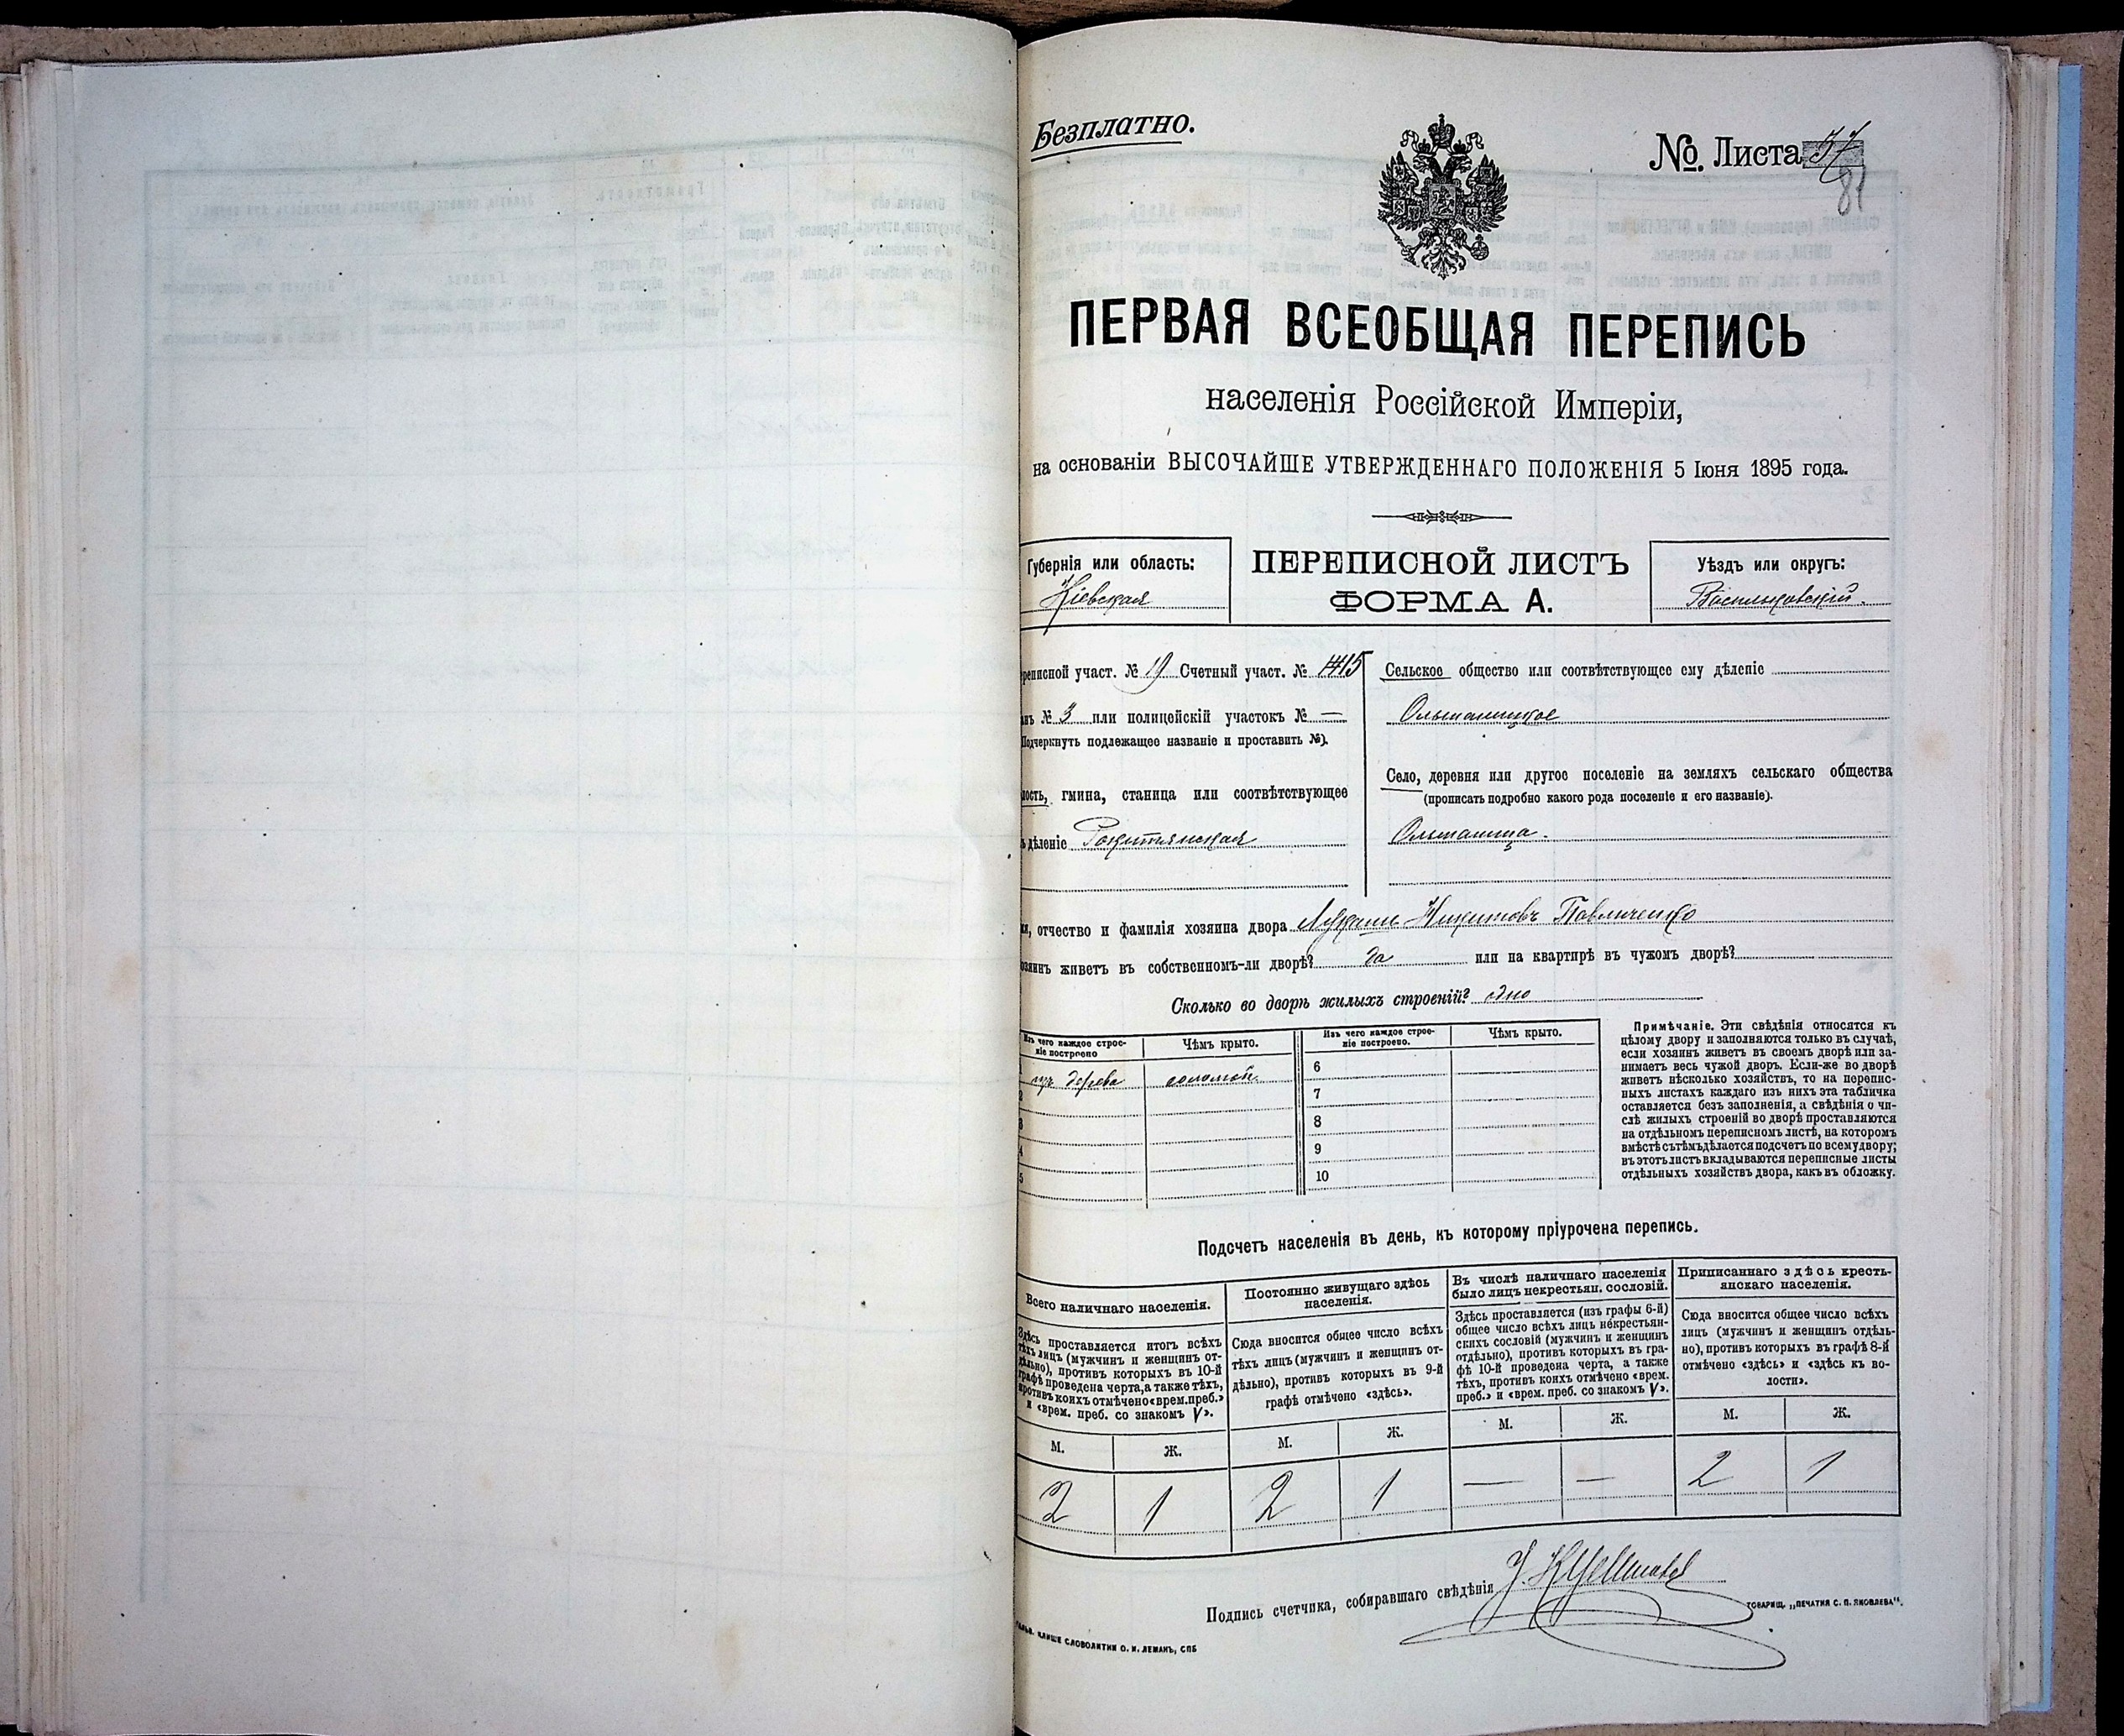 Безплатно.
№ Листа 37
81
ПЕРВАЯ ВСЕОБЩАЯ ПЕРЕПИСЬ
населенія Россійской Имперіи,
на основаніи ВЫСОЧАЙШЕ УТВЕРЖДЕННАГО ПОЛОЖЕНІЯ 5 Іюня 1895 года.
Губернія или область:
Кіевская
ПЕРЕПИСНОЙ ЛИСТЪ
ФОРМА А.
Уѣздъ или округъ:
Васильковскій.
реписной участ. № 19 Счетный участ. № 15
нъ № 3 или полицейскій участокъ № —
Подчеркнуть подлежащее названіе и проставить №).
лость, гмина, станица или соотвѣтствующее
ъ дѣленіе Рокитянская
Сельское общество или соотвѣтствующее ему дѣленіе
Ольшаницкое
Село, деревня или другое поселеніе на земляхъ сельскаго общества
(прописать подробно какого рода поселеніе и его названіе).
Ольшаница.
я, отчество и фамилія хозяина двора Лукаш Никитовъ Павличенко
озяинъ живетъ въ собственномъ-ли дворѣ? да или на квартирѣ въ чужомъ дворѣ?
Сколько во дворѣ жилыхъ строеній? одно
Изъ чего каждое строе-
ніе построено
Чѣмъ крыто.
Изъ чего каждое строе-
ніе построено.
Чѣмъ крыто.
1 изъ дерева соломой. 6
2 7
3 8
4 9
5 10
Примѣчаніе. Эти свѣдѣнія относятся къ
цѣлому двору и заполняются только въ случаѣ,
если хозяинъ живетъ въ своемъ дворѣ или за-
нимаетъ весь чужой дворъ. Если-же во дворѣ
живетъ нѣсколько хозяйствъ, то на перепис-
ныхъ листахъ каждаго изъ нихъ эта табличка
оставляется безъ заполненія, а свѣдѣнія о чи-
слѣ жилыхъ строеній во дворѣ проставляются
на отдѣльномъ переписномъ листѣ, на которомъ
вмѣстѣ съ тѣмъ дѣлается подсчетъ по всему двору;
въ этотъ листъ вкладываются переписные листы
отдѣльныхъ хозяйствъ двора, какъ въ обложку.
Подсчетъ населенія въ день, къ которому пріурочена перепись.
Всего наличнаго населенія.
Здѣсь проставляется итогъ всѣхъ
тѣхъ лицъ (мужчинъ и женщинъ от-
дѣльно), противъ которыхъ въ 10-й
графѣ проведена черта, а также тѣхъ,
противъ коихъ отмѣчено «врем. преб.»
и «врем. преб. со знакомъ V».
Постоянно живущаго здѣсь
населенія.
Сюда вносится общее число всѣхъ
тѣхъ лицъ (мужчинъ и женщинъ от-
дѣльно), противъ которыхъ въ 9-й
графѣ отмѣчено «здѣсь».
Въ числѣ наличнаго населенія
было лицъ некрестьян. сословій.
Здѣсь проставляется (изъ графы 6-й)
общее число всѣхъ лицъ некрестьян-
скихъ сословій (мужчинъ и женщинъ
отдѣльно), противъ которыхъ въ гра-
фѣ 10-й проведена черта, а также
тѣхъ, противъ коихъ отмѣчено «врем.
преб.» и «врем. преб. со знакомъ V».
Приписаннаго здѣсь кресть-
янскаго населенія.
Сюда вносится общее число всѣхъ
лицъ (мужчинъ и женщинъ отдѣль-
но), противъ которыхъ въ графѣ 8-й
отмѣчено «здѣсь» и «здѣсь къ во-
лости».
М. Ж. М. Ж. М. Ж. М. Ж.
2 1 2 1 — — 2 1
Подпись счетчика, собиравшаго свѣдѣнія
КЛИШЕ СЛОВОЛИТНИ О. И. ЛЕМАНЪ, СПБ
ТОВАРИЩ. „ПЕЧАТНЯ С. П. ЯКОВЛЕВА".